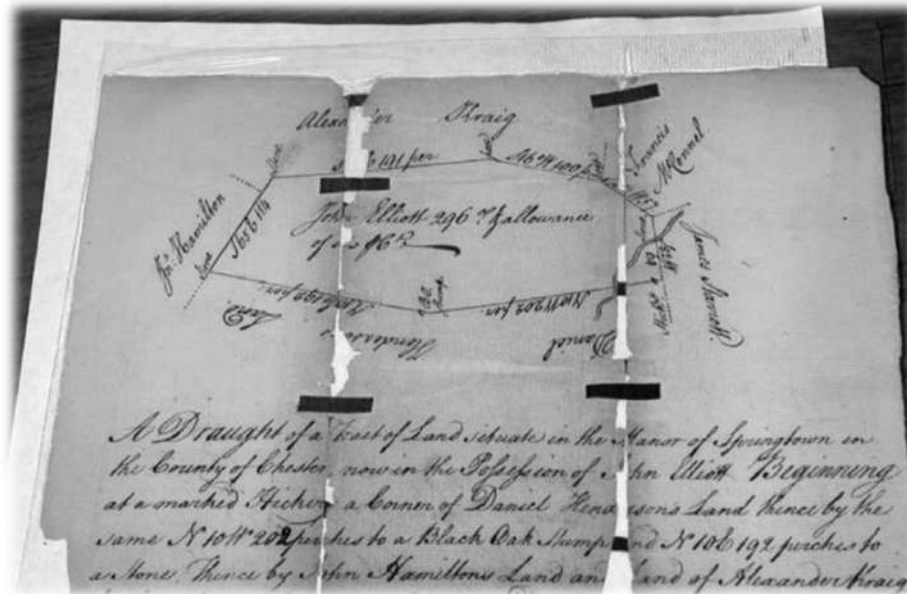 Alexander Kraig
S 6 E 191 per
S 6 W 100 p
Francis
McConnel
Jn.º Hamilton
Stone
S 65 E 114
Stone
John Elliott 296 A & allowance
of 6 P Ct
James Marnell
N 10 E 192 per.
B.O.
Stump
N 10 W 202 per
Daniel
Henderson's
Land
A Draught of a Tract of Land situate in the Manor of Springtown in
the County of Chester, now in the Possession of John Elliott Beginning
at a marked Hickery a Corner of Daniel Hendersons Land thence by the
same N 10 W 202 perches to a Black Oak Stump and N 10 E 192 perches to
a Stone, thence by John Hamiltons Land and Land of Alexander Kraig